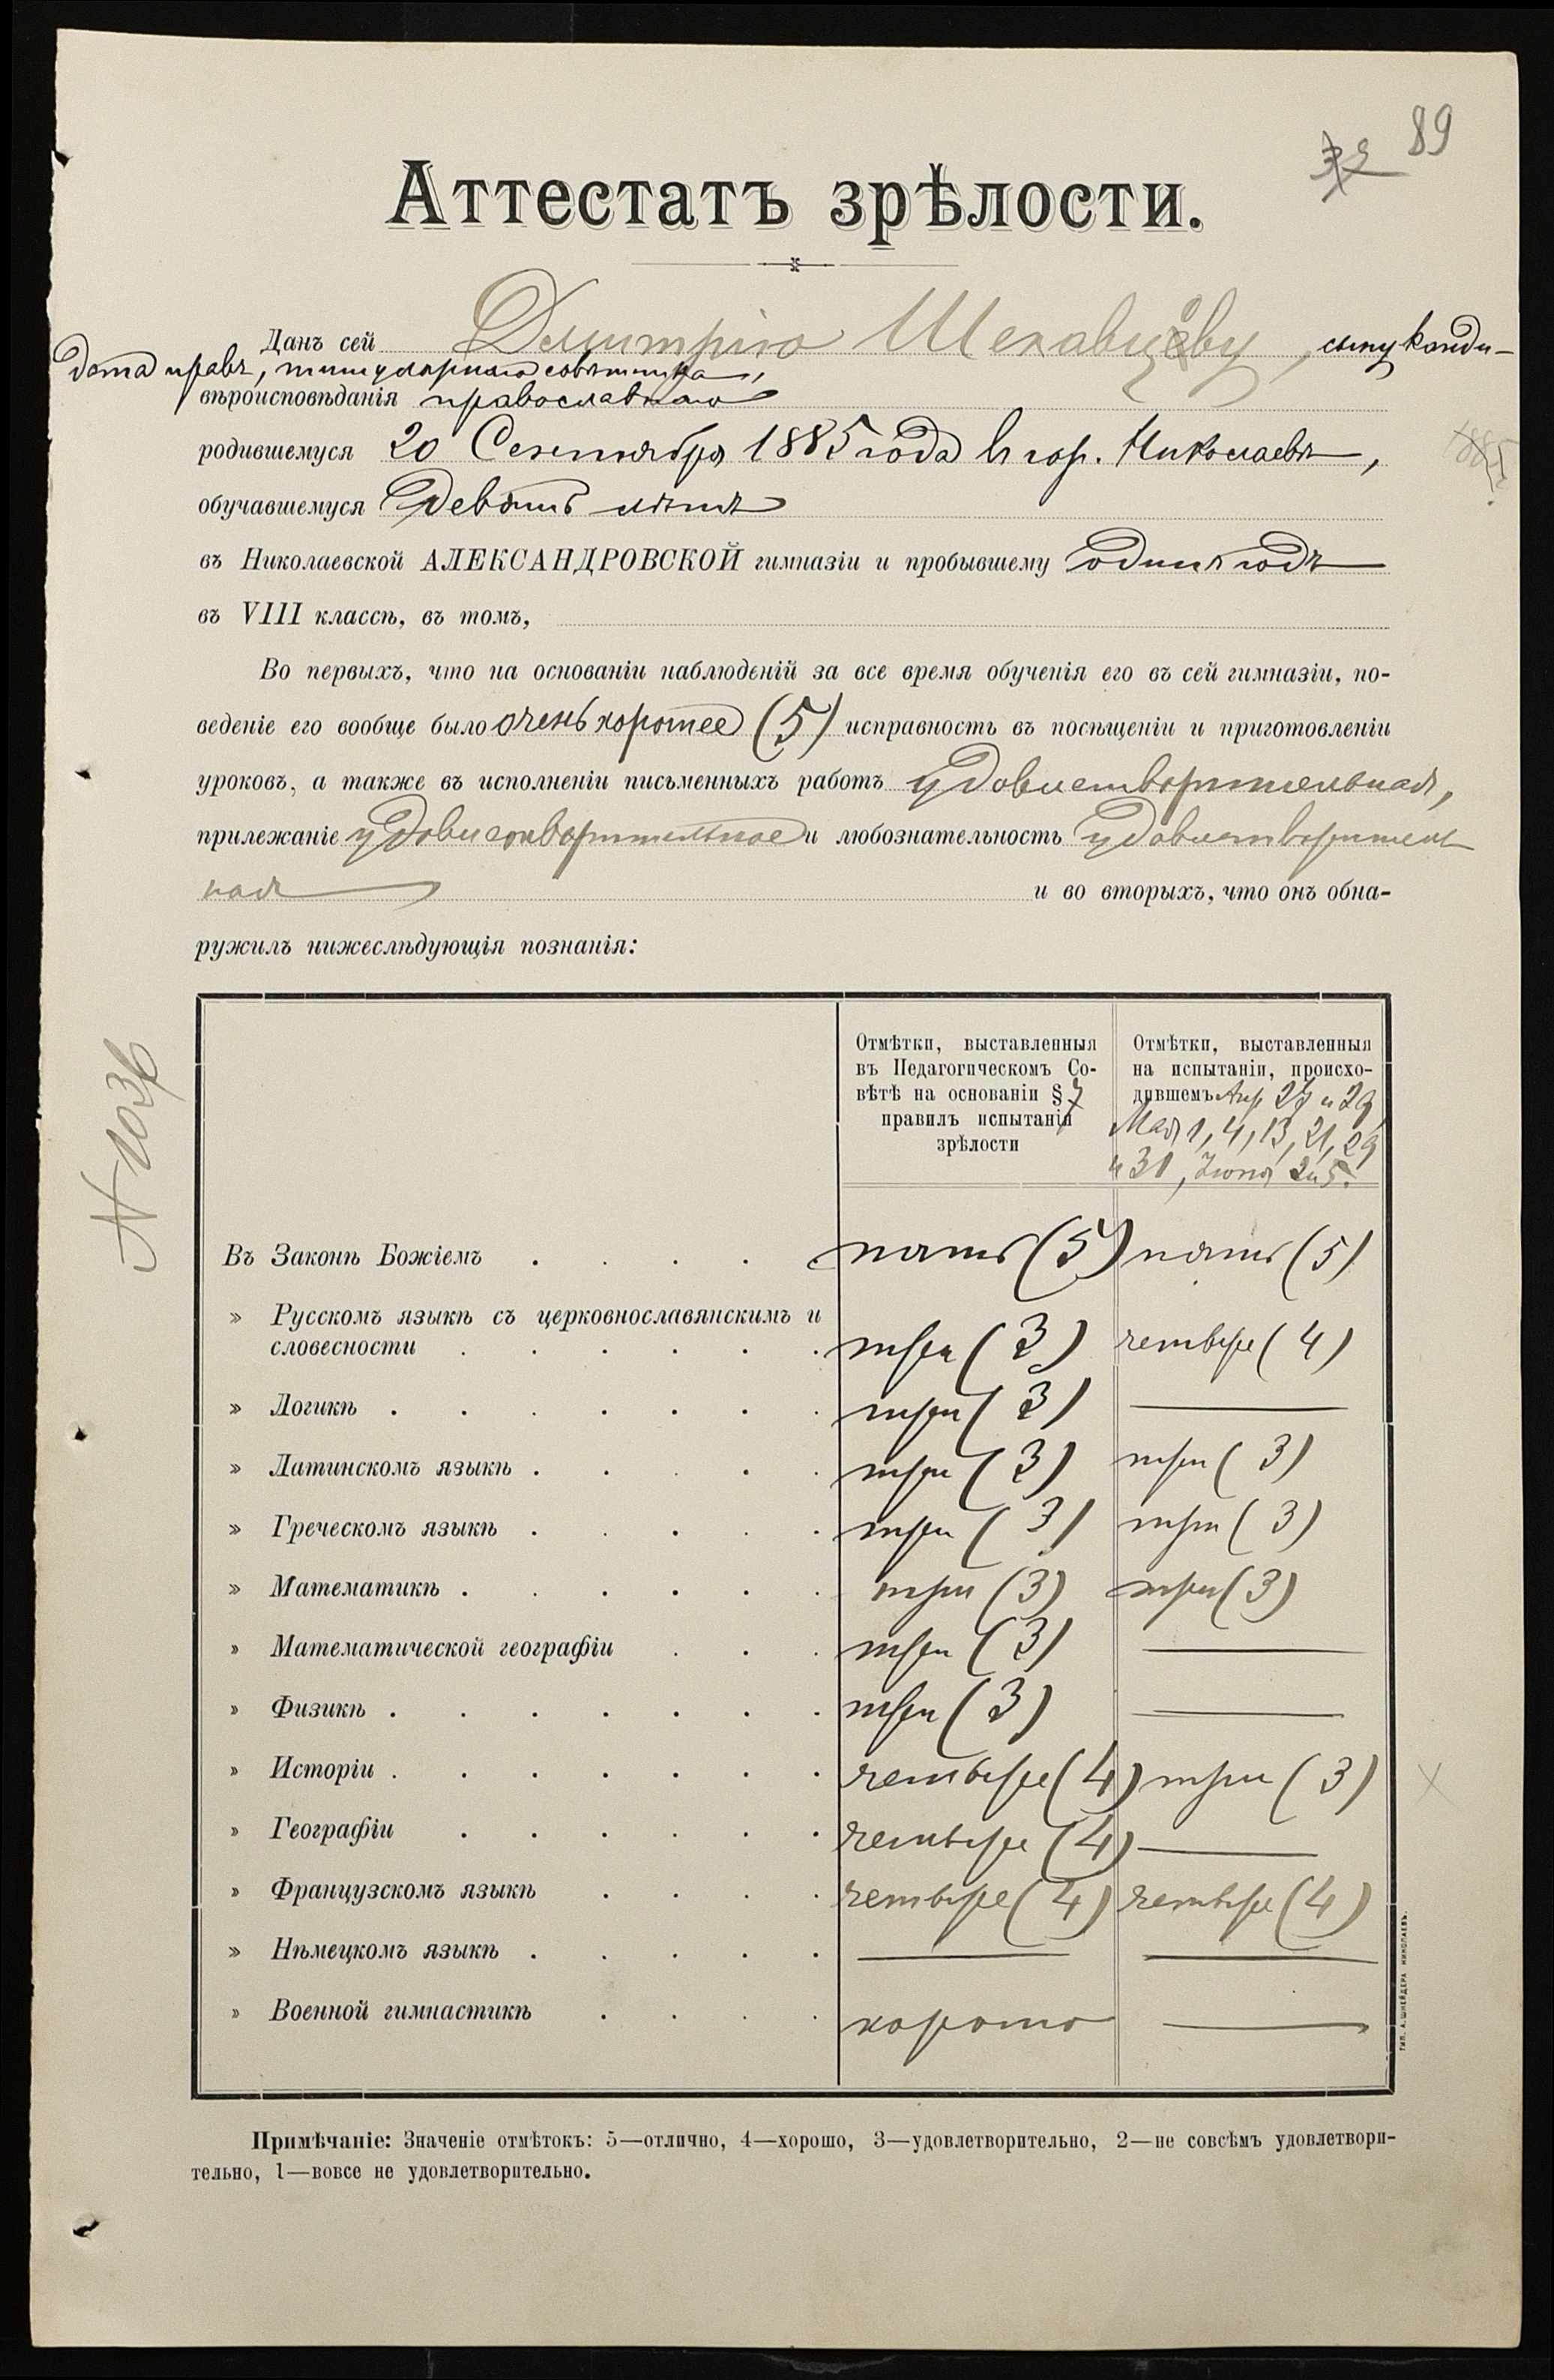 89
Аттестатъ зрѣлости.
Данъ сей Димитрію Шехавцову, сыну канди-
дата правъ, титулярнаго совѣтника,
вѣроисповѣданія православнаго
родившемуся 20 Сентября 1885 года въ гор. Николаевѣ,
1885
обучавшемуся девять лѣтъ
въ Николаевской АЛЕКСАНДРОВСКОЙ гимназіи и пробывшему одинъ годъ
въ VIII классѣ, въ томъ,
Во первыхъ, что на основаніи наблюденій за все время обученія его въ сей гимназіи, по-
веденіе его вообще было очень хорошее (5) исправность въ посѣщеніи и приготовленіи
уроковъ, а также въ исполненіи письменныхъ работъ удовлетворительная,
прилежаніе удовлетворительное и любознательность удовлетворитель
ная и во вторыхъ, что онъ обна-
ружилъ нижеслѣдующія познанія:
N 1036
Отмѣтки, выставленныя
въ Педагогическомъ Со-
вѣтѣ на основаніи § 7
правилъ испытанія
зрѣлости
Отмѣтки, выставленныя
на испытаніи, происхо-
дившемъ Апр 27 и 29,
Мая 1, 4, 13, 21, 29
и 31, Іюня 2 и 5.
Въ Законѣ Божіемъ . . . . пять (5) пять (5)
» Русскомъ языкѣ съ церковнославянскимъ и
словесности . . . . . . три (3) четыре (4)
» Логикѣ . . . . . . . три (3) —
» Латинскомъ языкѣ . . . . . три (3) три (3)
» Греческомъ языкѣ . . . . . три (3) три (3)
» Математикѣ . . . . . . три (3) три (3)
» Математической географіи . . . три (3) —
» Физикѣ . . . . . . . три (3) —
» Исторіи . . . . . . . четыре (4) три (3)
» Географіи . . . . . . четыре (4) —
» Французскомъ языкѣ . . . . четыре (4) четыре (4)
» Нѣмецкомъ языкѣ . . . . . — —
» Военной гимнастикѣ . . . . хорошо —
ТИП. А. ШНЕЙДЕРА НИКОЛАЕВЪ.
Примѣчаніе: Значеніе отмѣтокъ: 5—отлично, 4—хорошо, 3—удовлетворительно, 2—не совсѣмъ удовлетвори-
тельно, 1—вовсе не удовлетворительно.